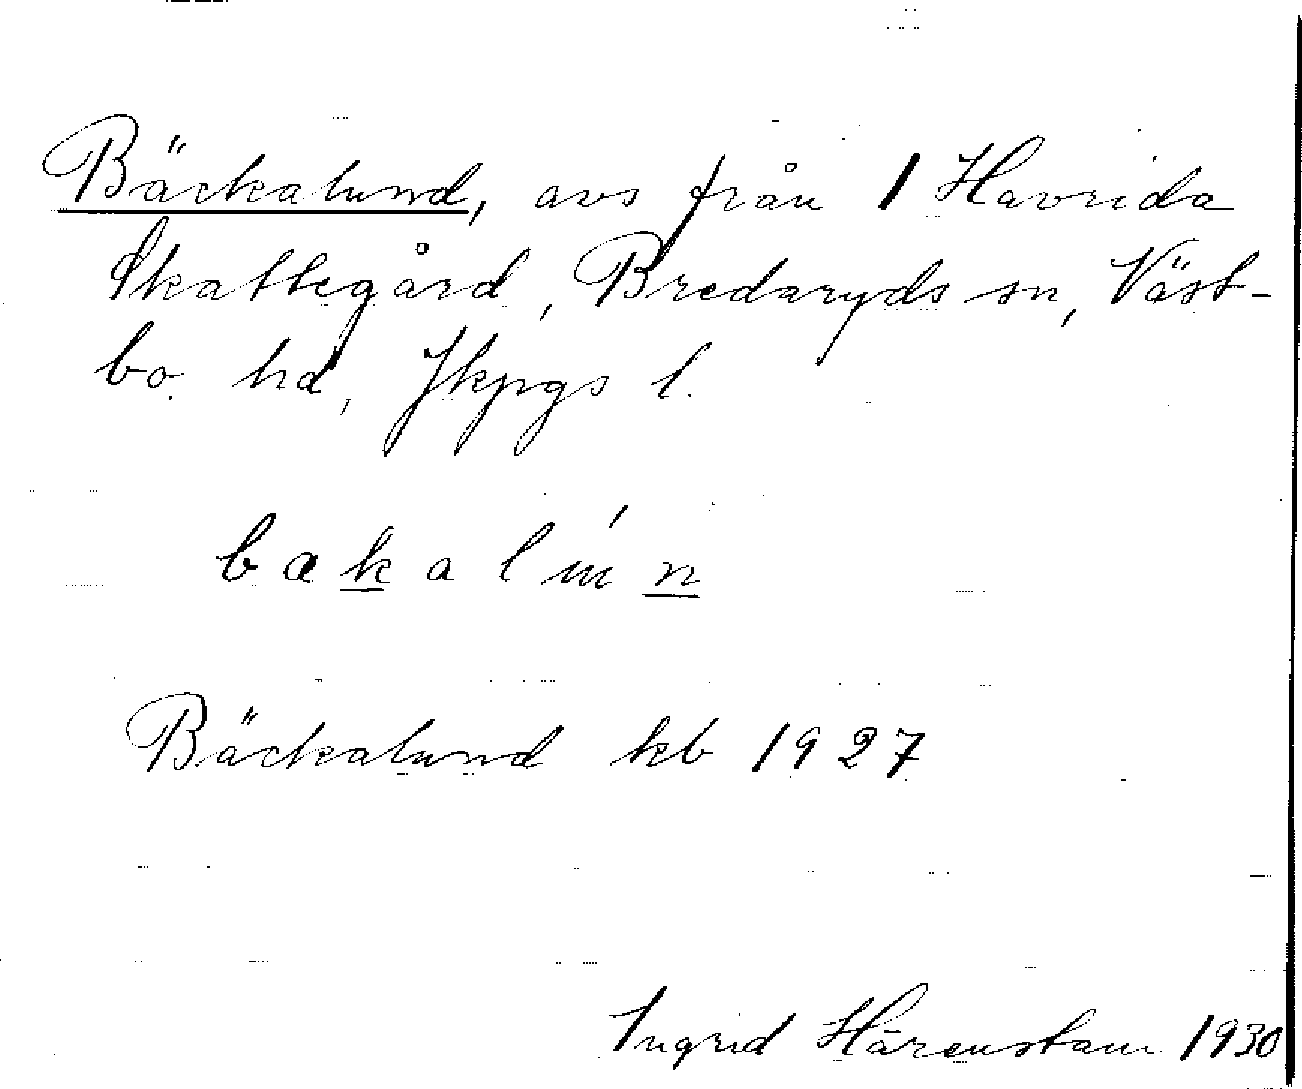 Bäckalund, avs från 1 Havrida
Skattegård, Bredaryds sn, Väst-
bo hd, Jkpgs l.
bækalún
Bäckalund kb 1927
Ingrid Härenstam 1930